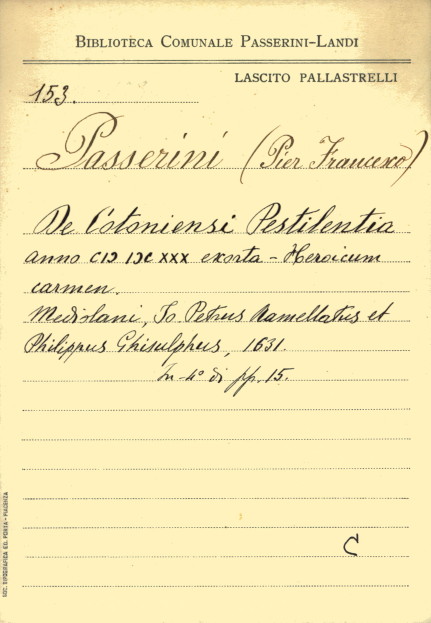 BIBLIOTECA COMUNALE PASSERINI-LANDI
LASCITO PALLASTRELLI
153.
Passerini (Pier Francesco)
De Cotoniensi Pestilentia
anno CIƆ IƆC XXX exorta - Heroicum
carmen.
Mediolani, Io. Petrus Ramellatus et
Philippus Ghisulphus, 1631.
In-4° di pp. 15.
C
SOC. TIPOGRAFICA ED. PORTA - PIACENZA